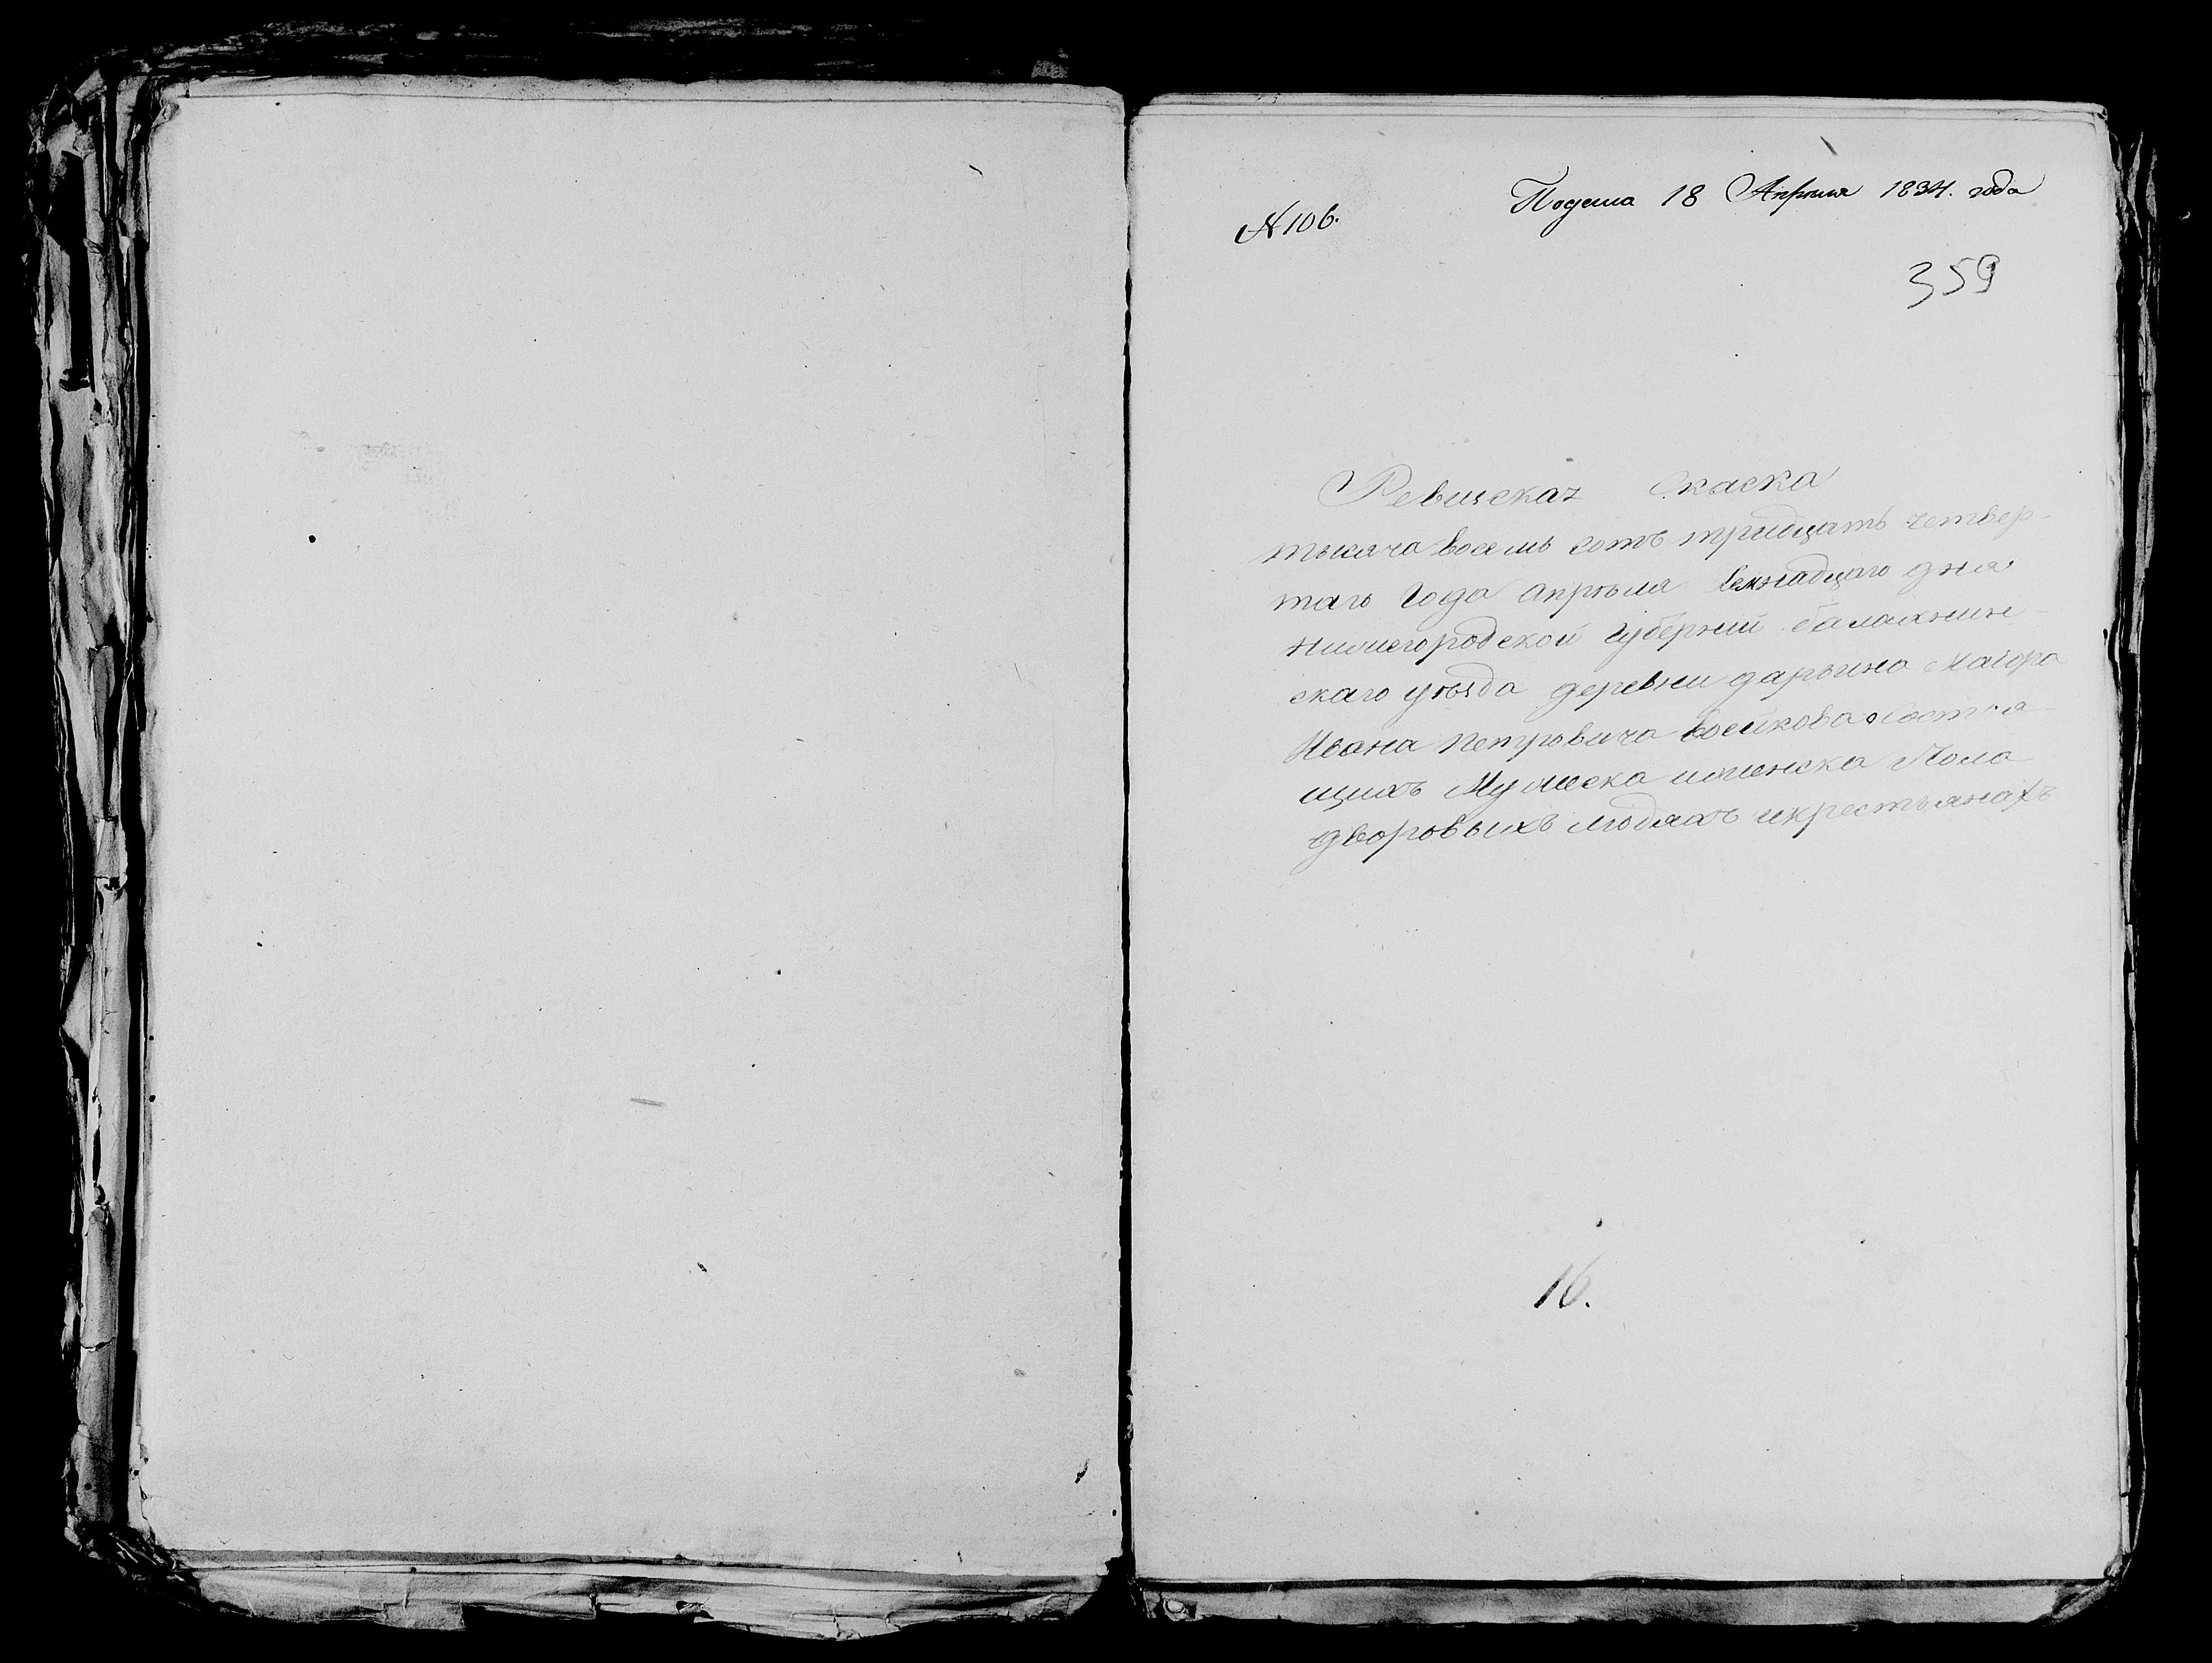 № 106.
Подана 18 Апреля 1834. года
359
Ревиская Скаска
тысяча восемь сотъ тридцать четвер-
таго года апреля дня
нижегородской губернии балахнин-
скаго уѣзда деревни дарьина Маiора
Ивана Петровича воейкова Состоя-
щихъ Мужеска иженска Пола
дворовыхъ людяхъ икрестьянахъ
16.